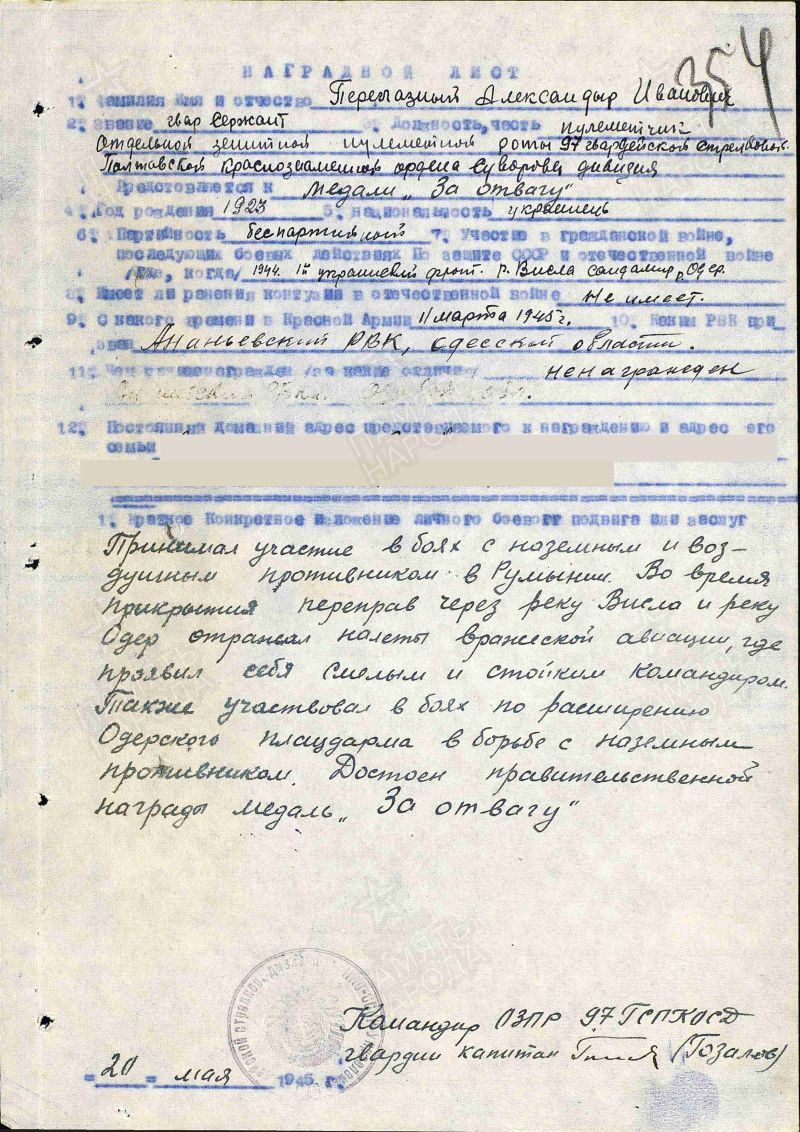 354
НАГРАДНОЙ ЛИСТ
1. Фамилия Имя и отчество Перелазный Александыр Иванович
2. Звание гвар Сержант 3. Должность, часть пулеметчик
Отдельной зенитной пулеметной роты 97 гвардейской стрелковой
Полтавской Краснознаменной ордена Суворова дивизия
Представляется к медали „За отвагу"
4. Год рождения 1923 5. национальность украинец
6. Партийность беспартийной 7. Участие в гражданской войне,
последующих боевых действиях По защите СССР и отечественной войне
/где, когда/ 1944. 1й украинский фронт. р. Висла сандамир, Одер.
8. Имеет ли ранения контузии в отечественной войне Не имеет.
9. С какого времени в Красной Армии 11 марта 1945 г. 10. Каким РВК при
зван Ананьевский РВК, Одесской области.
11. Чем ранее награжден /за какие отличия/ ненагражден
12. Постоянный домашний адрес представляемого к награждению и адрес его
семьи
1. Краткое Конкретное изложение личного боевого подвига или заслуг
Принимал участие в боях с наземным и воз-
душным противником в Румынии. Во время
прикрытия переправ через реку Висла и реку
Одер отражал налеты вражеской авиации, где
проявил себя смелым и стойким командиром.
Также участвовал в боях по расширению
Одерского плацдарма в борьбе с наземным
противником. Достоен правительственной
награды медаль „За отвагу"
Командир ОЗПР 97 ГСПКОСД
гвардии капитан (Гозалов)
"20" мая 1945 г.
ПАМЯТЬ НАРОДА